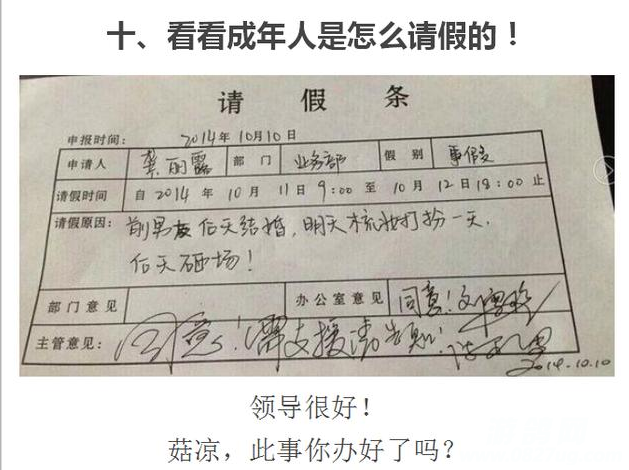 十、看看成年人是怎么请假的！
请 假 条
申报时间： 2014年10月10日
申请人 龚丽露 部 门 业务部 假 别 事假
请假时间 自 2014 年 10 月 11 日 9:00 至 10 月 12 日 18:00 止
请假原因： 前男友后天结婚，明天梳妆打扮一天，
后天砸场！
部门意见 办公室意见 同意！
主管意见： 同意！需支援请告知！
2014.10.10
领导很好！
菇凉，此事你办好了吗？